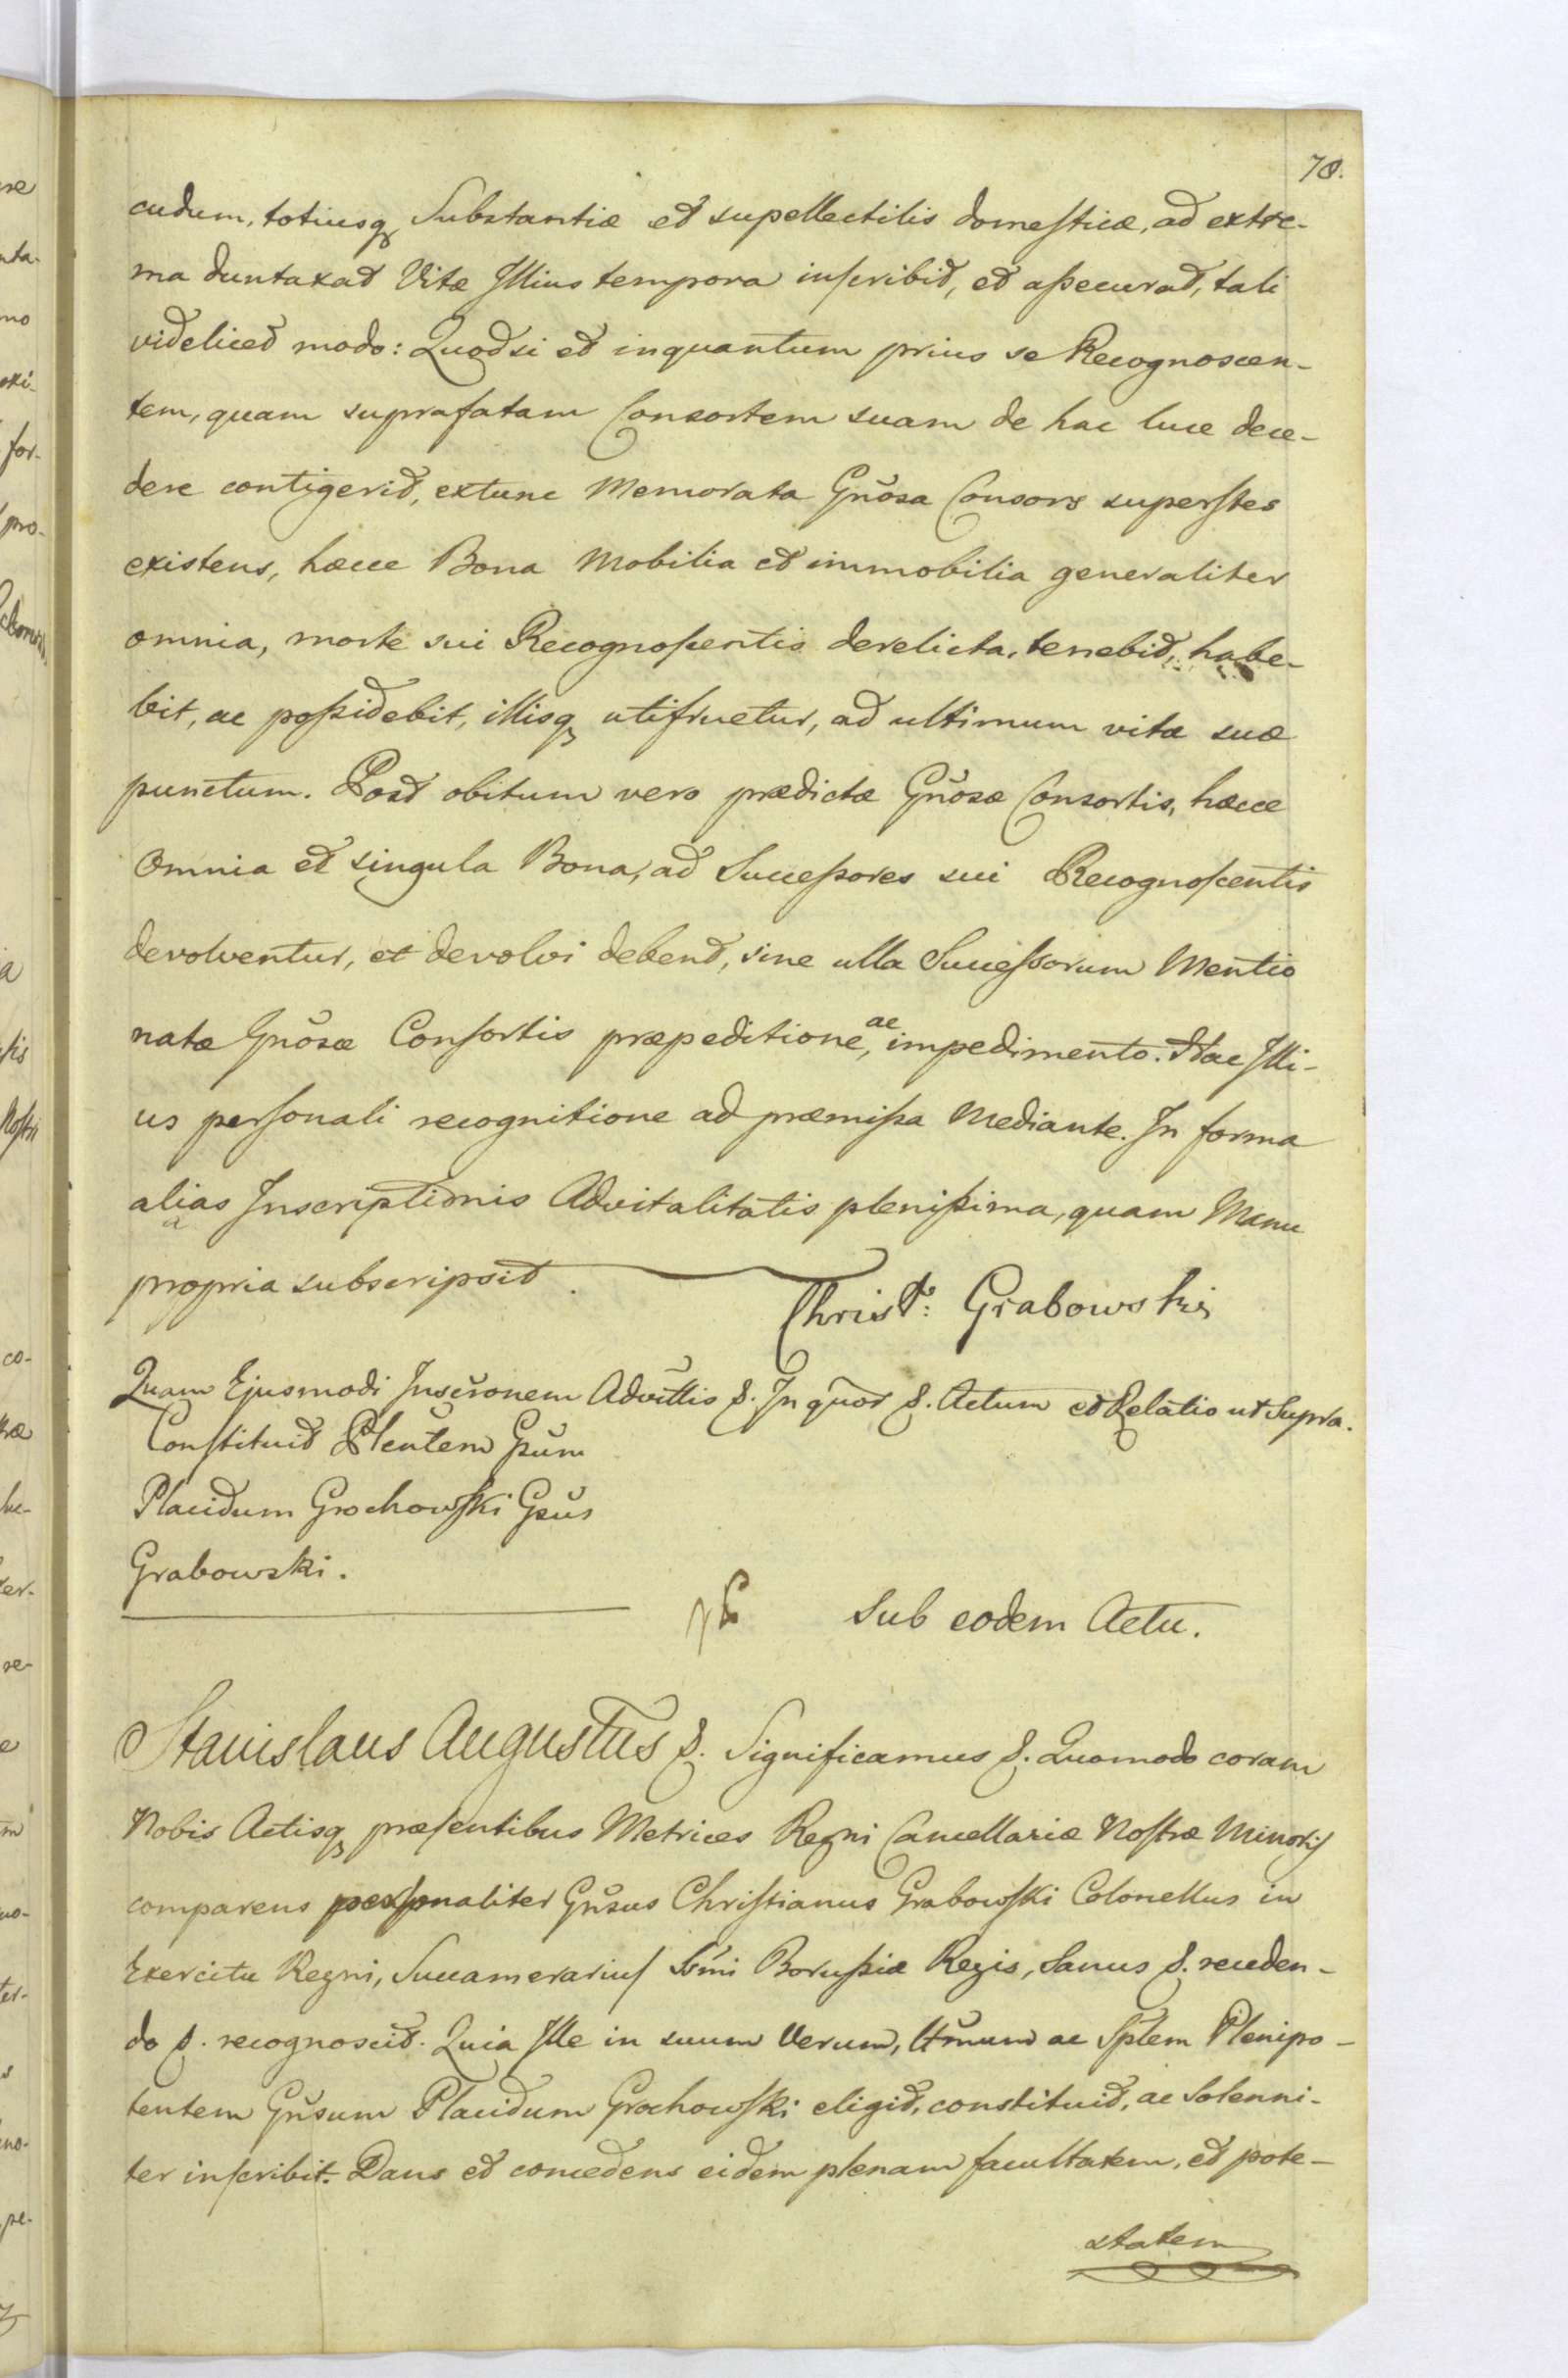 78.
cudum, totiusq, Substantiæ et supellectilis domesticæ, ad extre-
ma duntaxat Vitæ Illius tempora inscribit, et assecurat, tali
videlicet modo: Quodsi et inquantum prius se Recognoscen-
tem, quam suprafatam Consortem suam de hac luce dece-
dere contigerit, extunc Memorata Gñosa Consors superstes
existens, hæcce Bona Mobilia et immobilia generaliter
omnia, morte sui Recognoscentis derelicta, tenebit, habe-
bit, ac possidebit, illisq, utifruetur, ad ultimum vitæ suæ
punctum. Post obitum vero prædictæ Gñosæ Consortis, hæcce
Omnia et singula Bona, ad Successores sui Recognoscentis
devolventur, et devolvi debent, sine ulla Successorum Mentio
natæ Gñosæ Consortis præpeditione, ac impedimento. Hac Illi-
us personali recognitione ad præmissa Mediante. In forma
alias Inscriptionis Advitalitatis plenissima, quam Manu
propria subscripsit.
Christ: Grabowski
Quam Ejusmodi Inscr̃onem Advitt̃is &. In quor̃ &. Actum et Relatio ut Supra.
Constituit Pleñtem Gsũm
Placidum Grochowski Gsũs
Grabowski.
Sub eodem Actu.
Stanislaus Augustus &. Significamus &. Quomodo coram
Nobis Actisq, præsentibus Metrices Regni Cancellariæ Nostræ Minoris
comparens personaliter Gñsus Christianus Grabowski Colonellus in
Exercitu Regni, Succamerarius Sm̃i Borussiæ Regis, Sanus &. receden-
do &. recognoscit. Quia Ille in suum Verum, Ltm̃um ac Sp̃lem Plenipo-
tentem Gñsum Placidum Grochowski eligit, constituit, ac Solenni-
ter inscribit. Dans et concedens eidem plenam facultatem, et pote-
statem